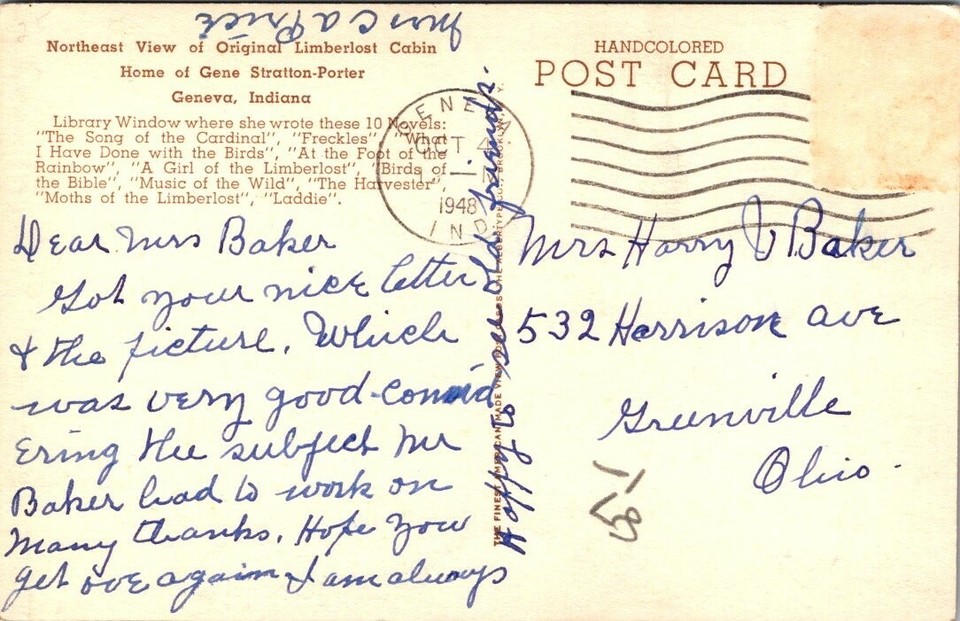 Northeast View of Original Limberlost Cabin
Home of Gene Stratton-Porter
Geneva, Indiana
Library Window where she wrote these 10 Novels:
"The Song of the Cardinal", "Freckles", "What
I Have Done with the Birds", "At the Foot of the
Rainbow", "A Girl of the Limberlost", "Birds of
the Bible", "Music of the Wild", "The Harvester",
"Moths of the Limberlost", "Laddie".
Dear Mrs Baker
Got your nice letter
& the picture. Which
was very good - consid
ering the subject Mr
Baker had to work on
Many thanks. Hope you
get ove again & I am always
Happy to see old friends.
Mrs C a Price
HANDCOLORED
POST CARD
GENEVA
OCT 4
1948
IND.
Mrs Harry J Baker
532 Harrison ave
Greenville
Ohio.
THE FINEST AMERICAN MADE VIEW